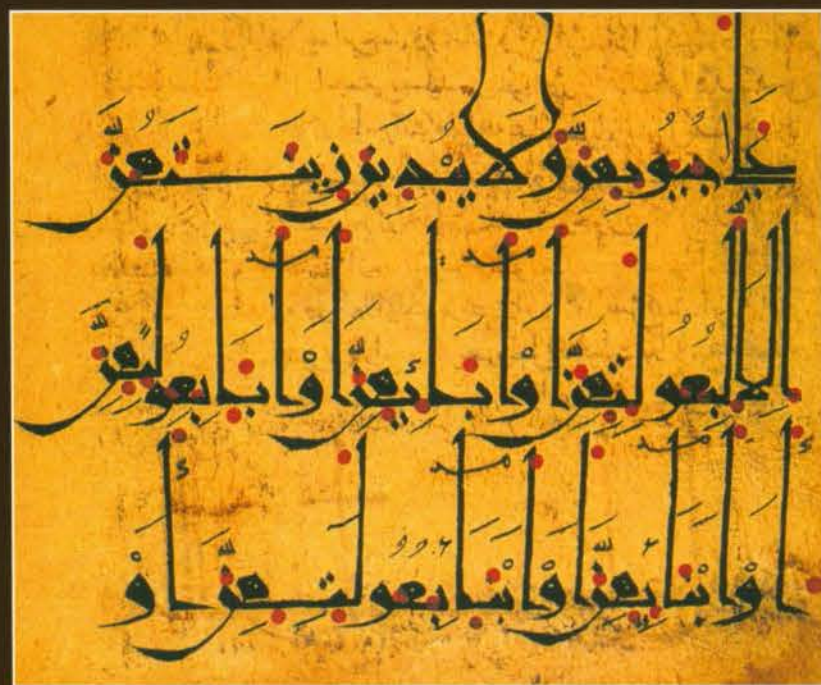 عَلَىٰ جُيُوبِهِنَّ وَلَا يُبْدِينَ زِينَتَهُنَّ
إِلَّا لِبُعُولَتِهِنَّ أَوْ آبَائِهِنَّ أَوْ آبَاءِ بُعُولَتِهِنَّ
أَوْ أَبْنَائِهِنَّ أَوْ أَبْنَاءِ بُعُولَتِهِنَّ أَوْ